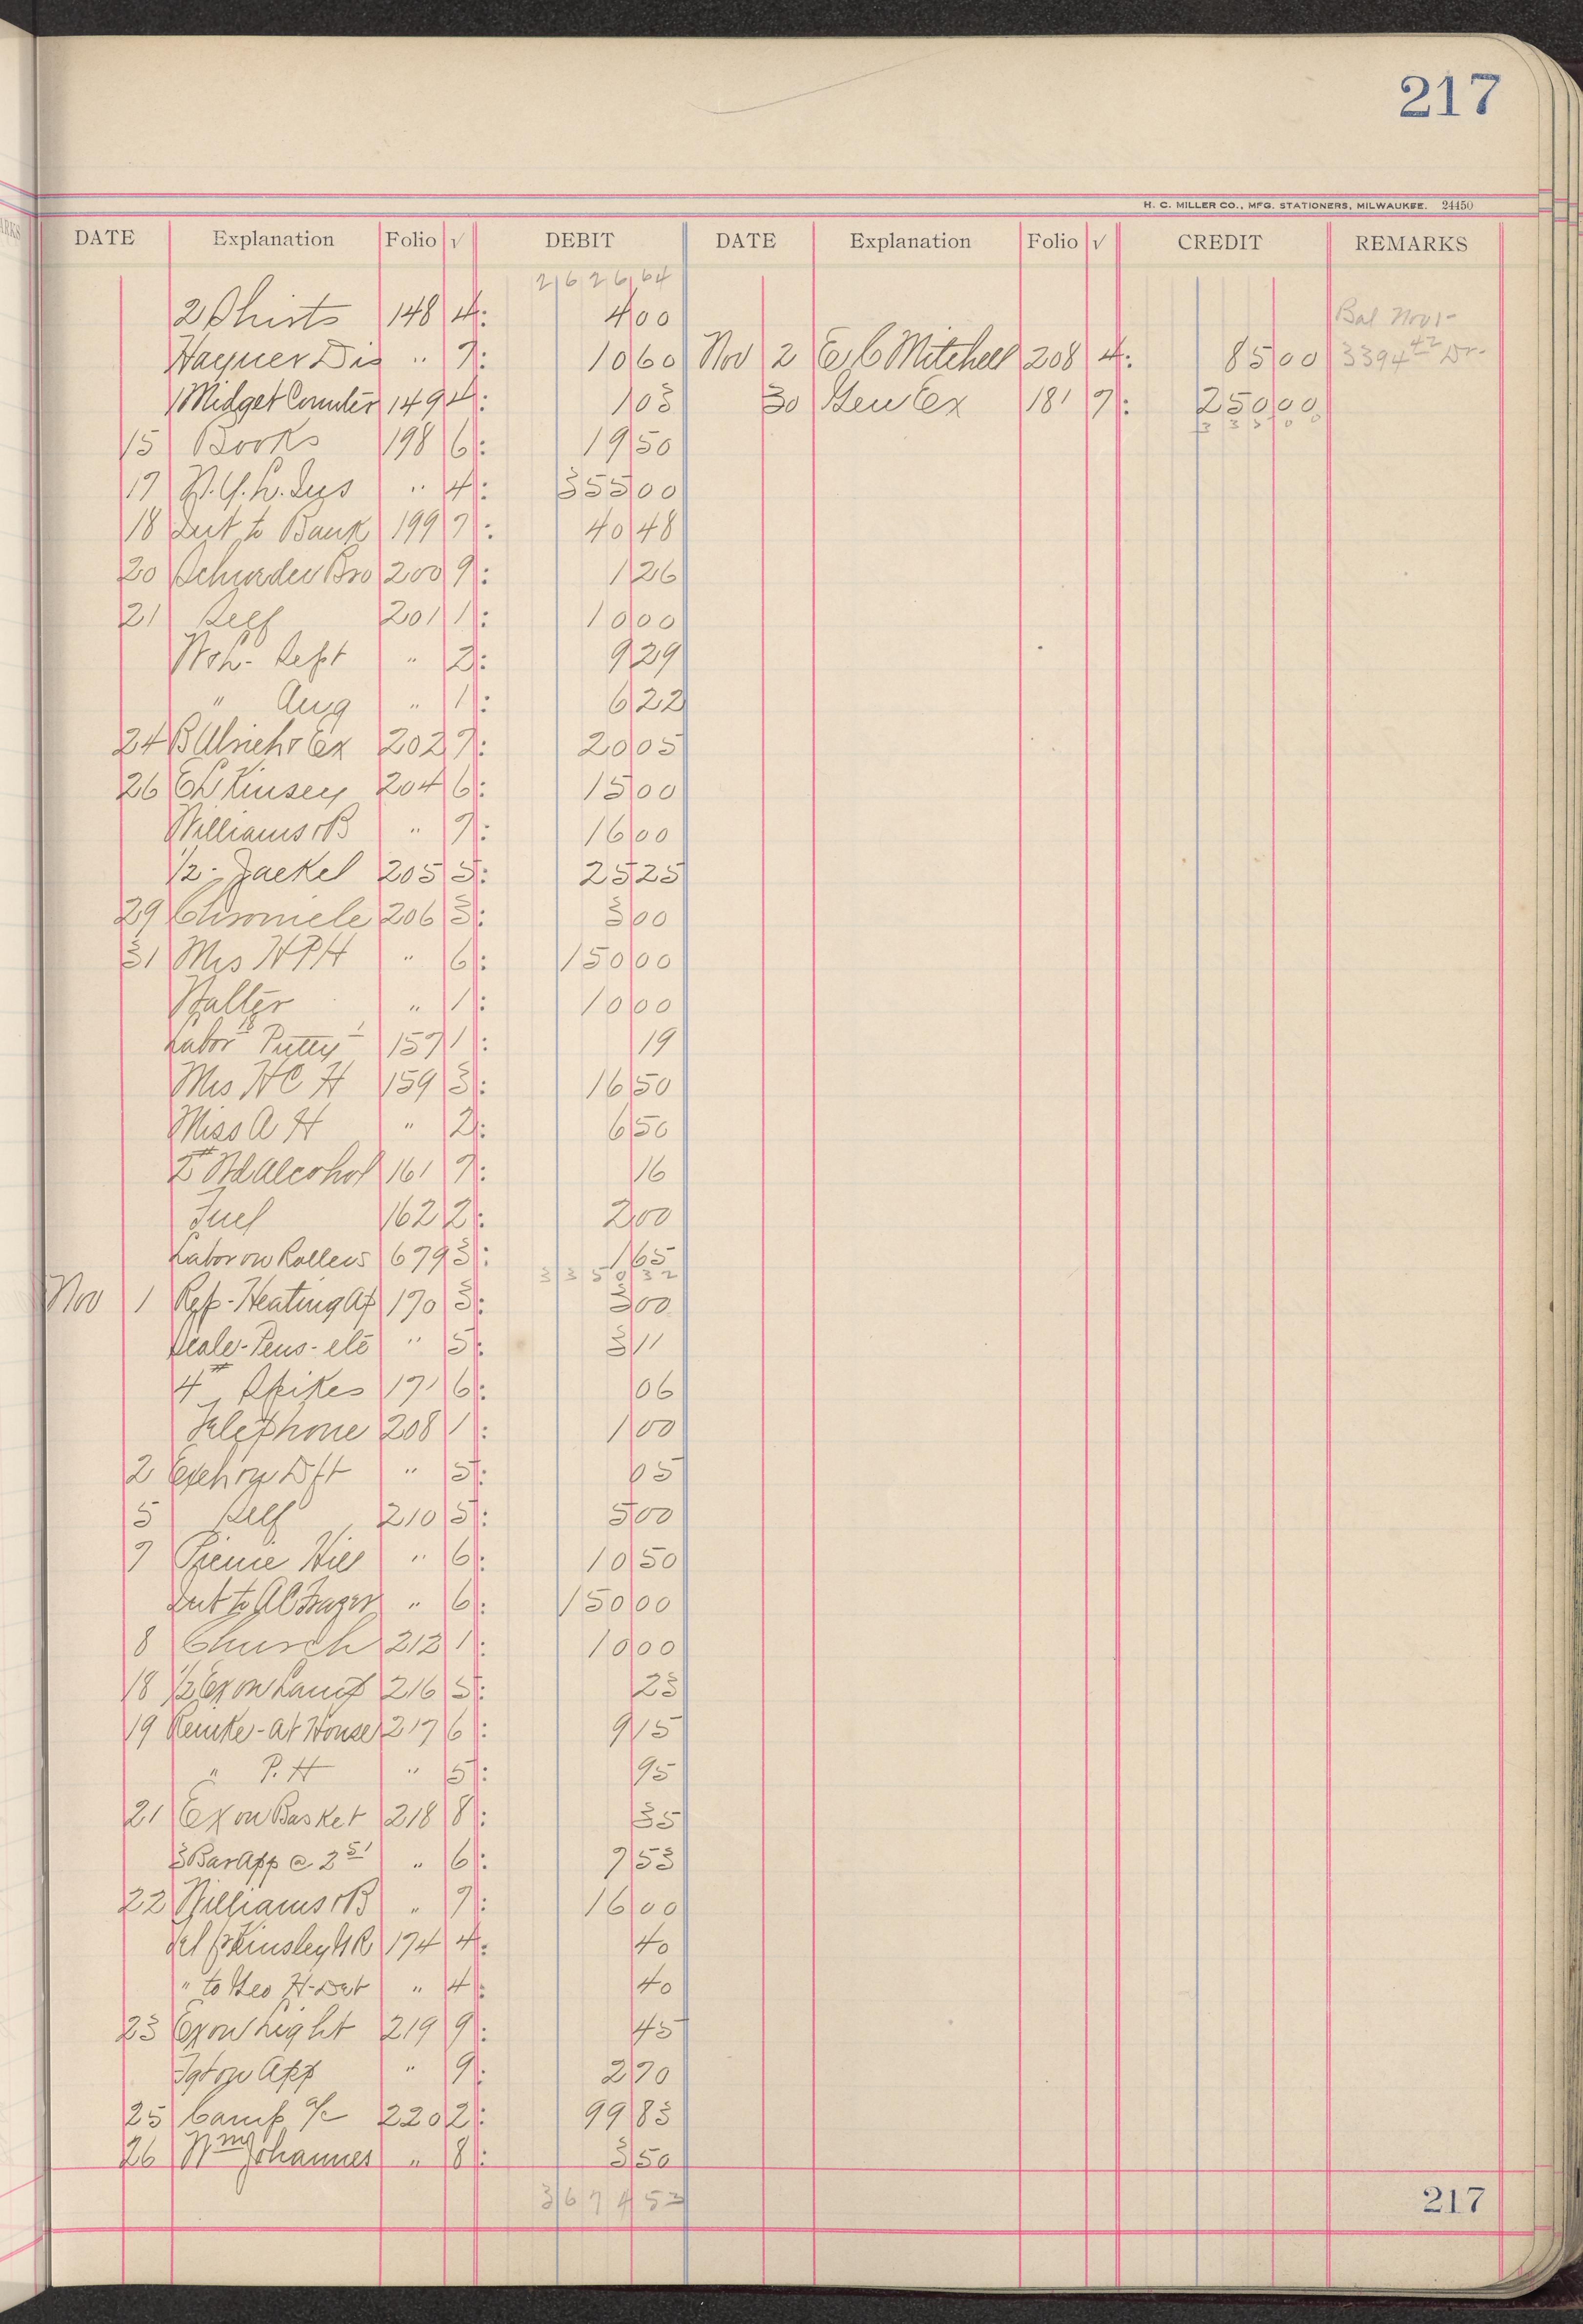 217
H. C. MILLER CO., MFG. STATIONERS, MILWAUKEE. 24450
DATE Explanation Folio √ DEBIT DATE Explanation Folio √ CREDIT REMARKS
2626 64
2 Shirts 148 4: 4 00 Bal Nov 1-
Wagner Dis " 7: 10 60 Nov 2 E C Mitchell 208 4: 85 00 3394 42 Dr-
1 Midget Counter 149 4: 1 03 30 Gen Ex 181 7: 250 00
335 00
15 Books 198 6: 19 50
17 " 4: 355 00
18 Int to Bank 199 7: 40 48
20 Bro 200 9: 1 26
21 Self 201 1: 10 00
Sept " 2: 9 29
" Aug " 1: 6 22
24 Ex 202 7: 20 05
26 Kinsey 204 6: 15 00
Williams " 7: 16 00
1/2 - Jaekel 205 5: 25 25
29 Chronicle 206 3: 3 00
31 Mrs " 6: 150 00
Walter " 1: 10 00
Labor Putty 157 1: 19
Mrs H C H 159 3: 16 50
Miss A H " 2: 6 50
Alcohol 161 7: 16
Fuel 162 2: 2 00
Labor on Rollers 679 3: 1 65
3350 32
Nov 1 Rep. Heating Ap 170 3: 3 00
Scale-Pens-etc " 5: 3 11
4 Spikes 171 6: 06
Telephone 208 1: 1 00
2 Exch on Dft " 5: 05
5 Self 210 5: 5 00
7 " 6: 10 50
Int to " 6: 150 00
8 Church 212 1: 10 00
18 1/2 Ex on Lamp 216 5: 25
19 Remke - at House 217 6: 9 15
" P. H " 5: 95
21 Ex on Basket 218 8: 35
3 Bar App @ 2 51 " 6: 7 53
22 Williams " 7: 16 00
Kinsley 174 4: 40
" to Geo H. " 4: 40
23 Ex on Light 219 9: 45
App " 9: 2 70
25 Camp % 220 2: 99 83
26 Wm Johannes " 8: 3 50
3674 52
217